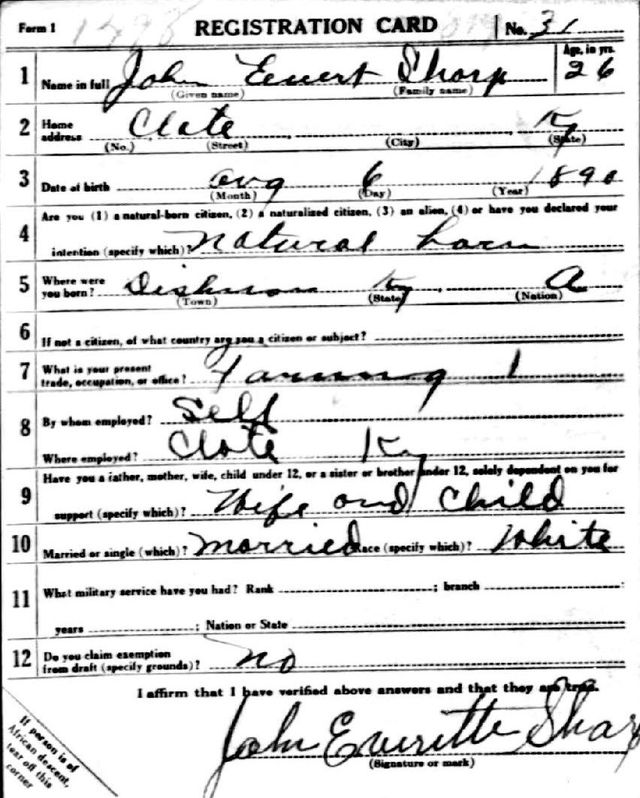 Form 1 REGISTRATION CARD No. 31
1 Name in full John Evert Sharp Age, in yrs. 26
(Given name) (Family name)
2 Home address Clate Ky
(No.) (Street) (City) (State)
3 Date of birth Aug 6 1890
(Month) (Day) (Year)
4 Are you (1) a natural-born citizen, (2) a naturalized citizen, (3) an alien, (4) or have you declared your
intention (specify which)? natural born
5 Where were you born? Ky A
(Town) (State) (Nation)
6 If not a citizen, of what country are you a citizen or subject?
7 What is your present trade, occupation, or office? Farming 1
8 By whom employed? Self
Where employed? Clate Ky
9 Have you a father, mother, wife, child under 12, or a sister or brother under 12, solely dependent on you for
support (specify which)? Wife and Child
10 Married or single (which)? Married Race (specify which)? White
11 What military service have you had? Rank ; branch
years ; Nation or State
12 Do you claim exemption from draft (specify grounds)? No
I affirm that I have verified above answers and that they are true.
John Everitte Sharp
(Signature or mark)
If person is of
African descent,
tear off this
corner